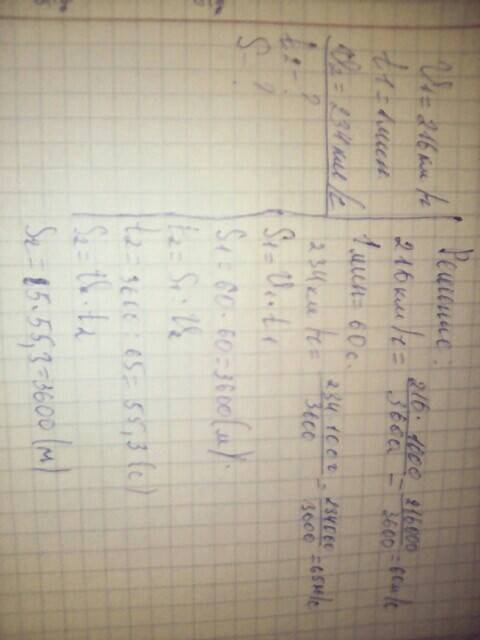 V₁ = 216 км/ч
t1 = 1 мин
V₂ = 234 км/ч
t₂ - ?
S - ?
Решение:
216 км/ч = 216·1000/3600 = 216000/3600 = 60м/с
1 мин = 60 с.
234 км/ч = 234·1000/3600 = 234000/3600 = 65м/с
S₁ = V₁·t₁
S₁ = 60·60 = 3600(м).
t₂ = S₁ : V₂
t₂ = 3600 : 65 = 55,3 (с)
S₂ = V₂·t₂
S₂ = 65·55,3 = 3600 (м)